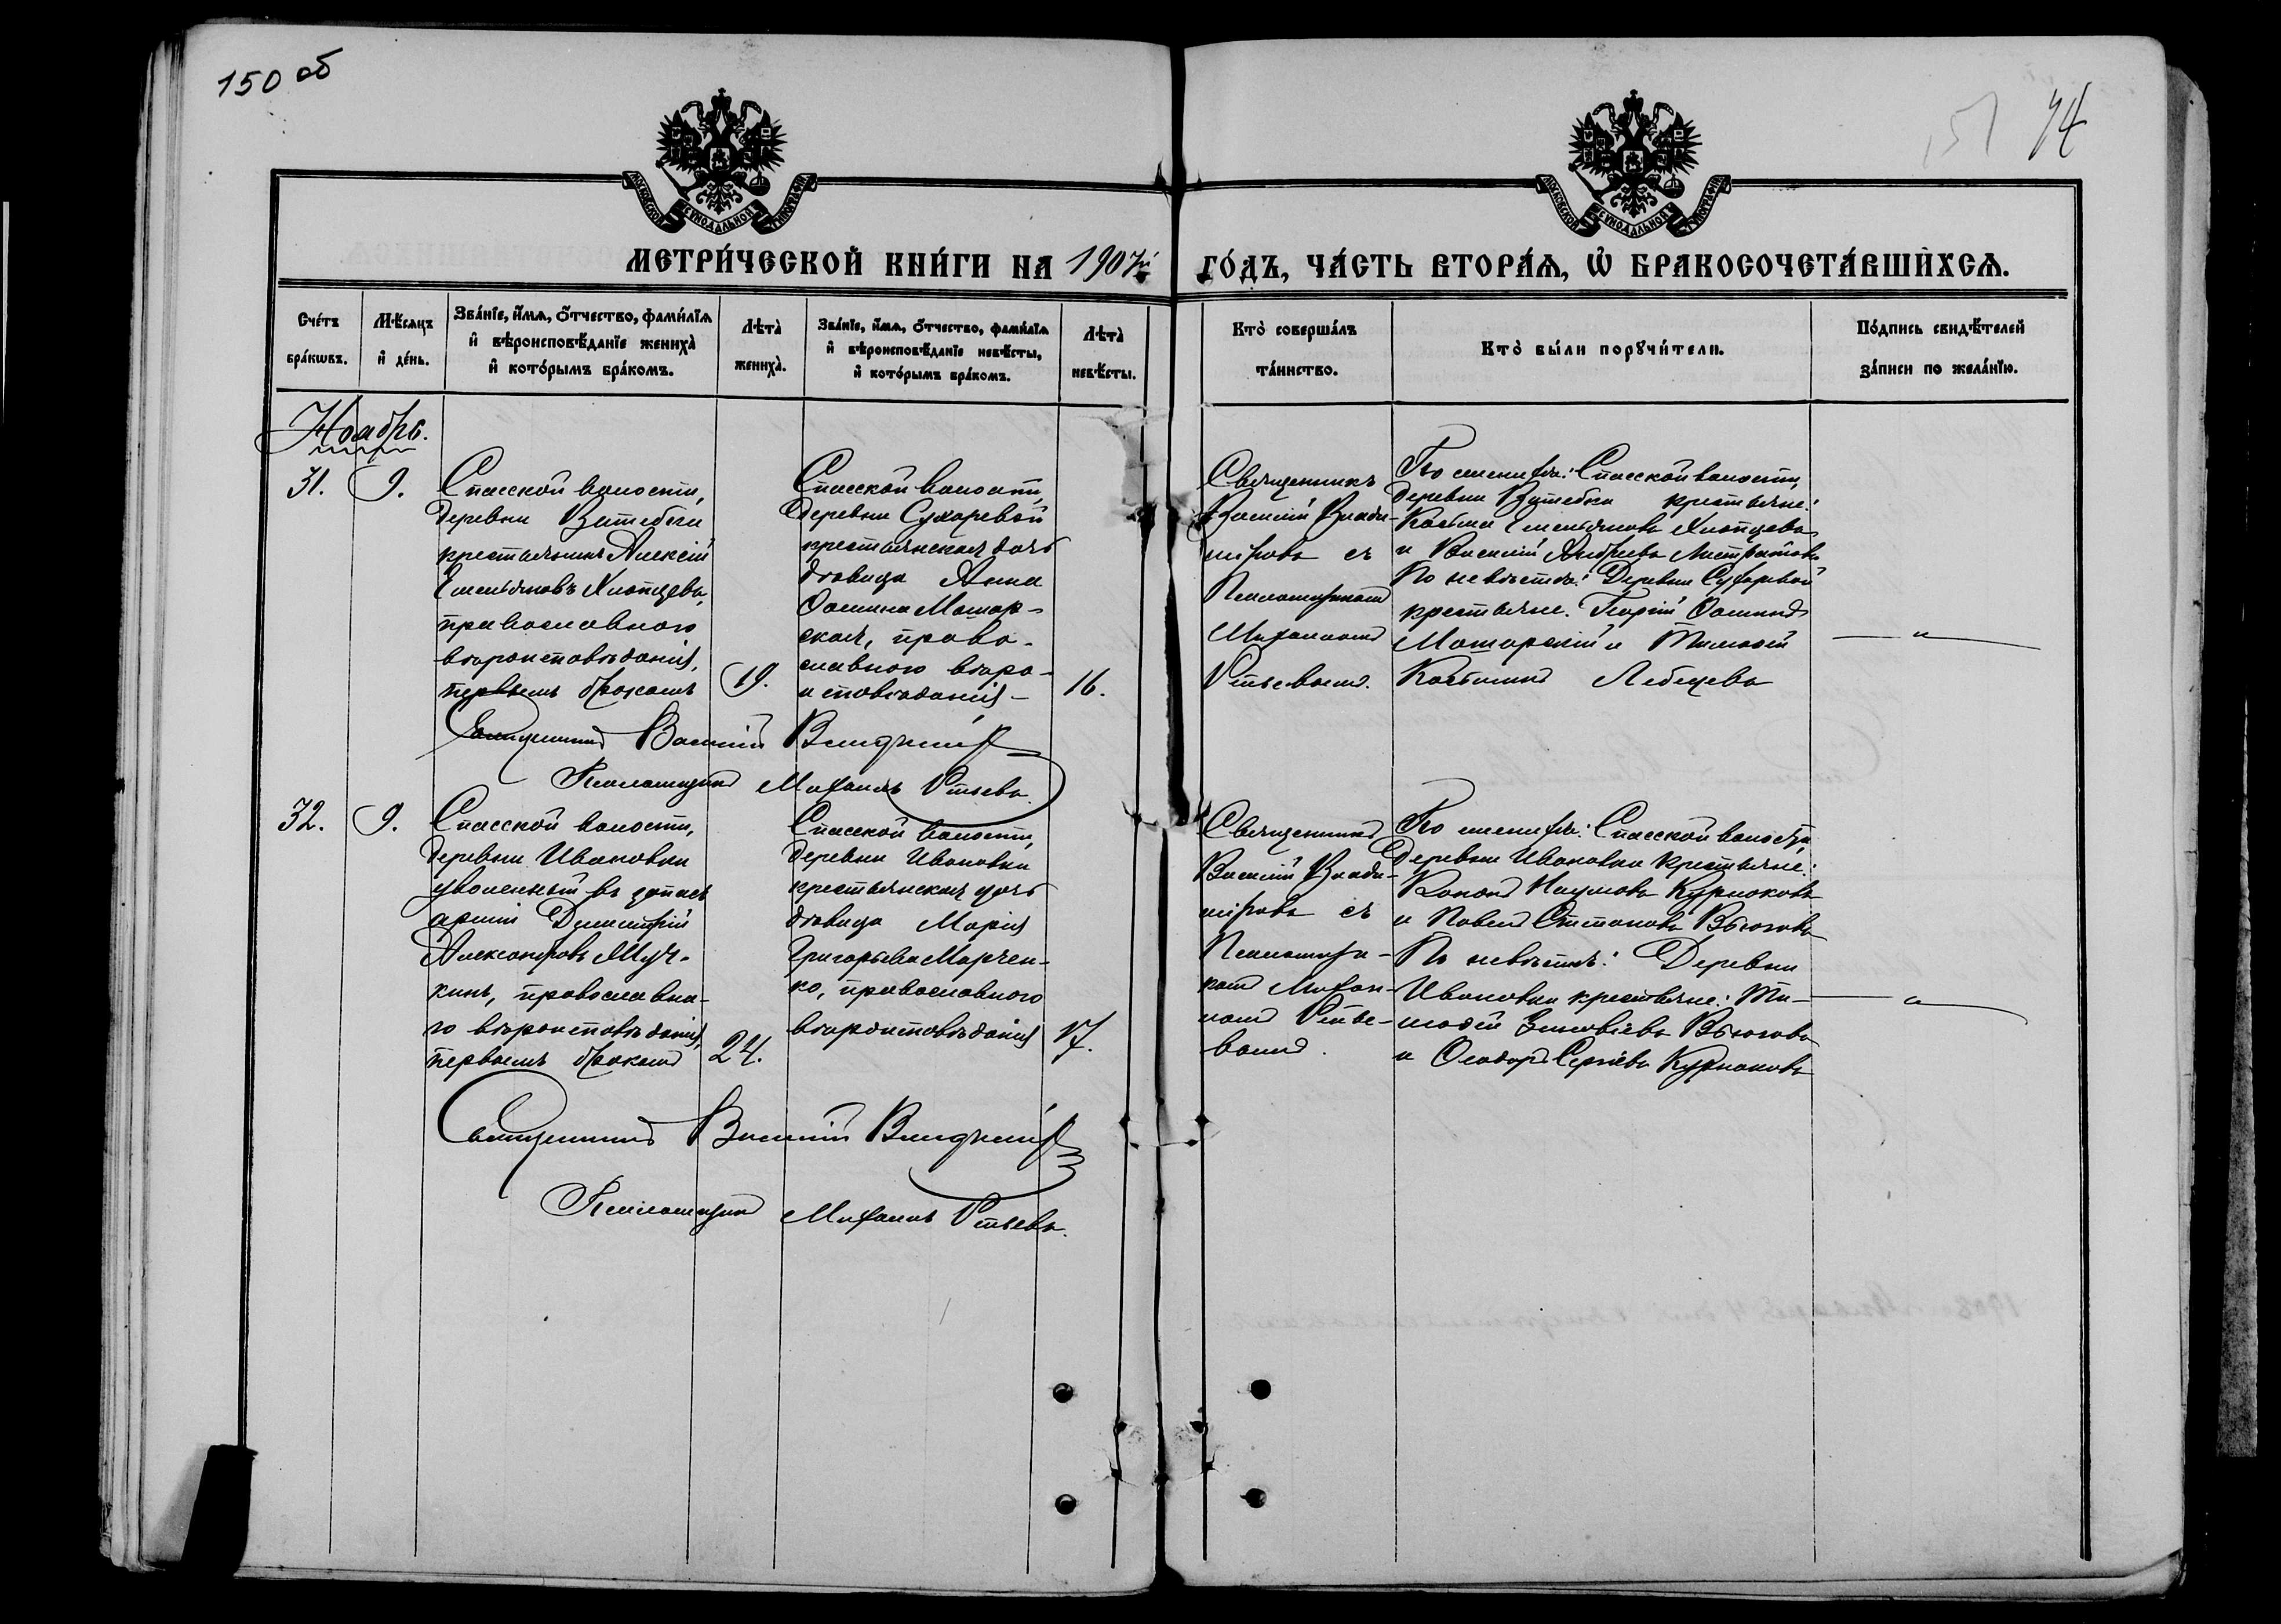 150 об
74
МОСКОВСКОЙ СѴНОДАЛЬНОЙ ТИПОГРАФІИ
МОСКОВСКОЙ СѴНОДАЛЬНОЙ ТИПОГРАФІИ
МЕТРИ́ЧЕСКОЙ КНИ́ГИ НА 1907й ГО́ДЪ, ЧА́СТЬ ВТОРА́Ѧ, Ѡ҆ БРАКОСОЧЕТА́ВШИХСѦ.
Сче́тъ
бра́кѡвъ.
Мѣ́сѧцъ
и҆ де́нь.
Зва́нїе, и҆́мѧ, ѻ҆́тчество, фами́лїѧ
и҆ вѣроисповѣ́данїе жениха̀
и҆ кото́рымъ бра́комъ.
Лѣта̀
жениха̀.
Зва́нїе, и҆́мѧ, ѻ҆́тчество, фами́лїѧ
и҆ вѣроисповѣ́данїе невѣ́сты,
и҆ кото́рымъ бра́комъ.
Лѣта̀
невѣ́сты.
Кто̀ соверша́лъ
та́инство.
Кто̀ бы́ли порꙋчи́тели.
По́дпись свидѣ́телей
за́писи по жела́нїю.
Ноябрь.
31.
9.
Спасской волости,
деревни Витебки
крестьянинъ Алексій
Емельяновъ Хлопцевъ,
православного
вѣроисповѣданія,
первымъ бракомъ
19.
Спасской волости,
деревни Сухаревой
крестьянская дочь
дѣвица Анна
Фомина Матар-
ская, право-
славного вѣро-
исповѣданія
16.
Священникъ
Василій Влади-
міровъ съ
Псаломщикомъ
Михаиломъ
По женихѣ: Спасской волости,
деревни Витебки крестьяне:
Косьма Емельяновъ Хлопцевъ
и Василій Андреевъ
По невѣстѣ: Деревни Сухаревой
крестьяне: Георгій Фоминъ
Матарскій и Тимофей
Косьминъ Лебедевъ
Священникъ Василій Владиміровъ
Псаломщикъ Михаилъ
32.
9.
Спасской волости,
деревни Ивановки
уволенный въ запасъ
арміи Димитрій
Александровъ Муч-
кинъ, православна-
го вѣроисповѣданія,
первымъ бракомъ
24.
Спасской волости,
деревни Ивановки
крестьянская дочь
дѣвица Марія
Григорьева Марчен-
ко, православного
вѣроисповѣданія
17.
Священникъ
Василій Влади-
міровъ съ
Псаломщи-
комъ Михаи-
ломъ
По женихѣ: Спасской волости,
деревни Ивановки крестьяне:
Кононъ Наумовъ Курнаковъ
и Павелъ Степановъ Вьюговъ
По невѣстѣ: Деревни
Ивановки крестьяне: Ти-
мофей Зиновіевъ Вьюговъ
и Феодоръ Сергіевъ Курнаковъ
Священникъ Василій Владиміровъ
Псаломщикъ Михаилъ